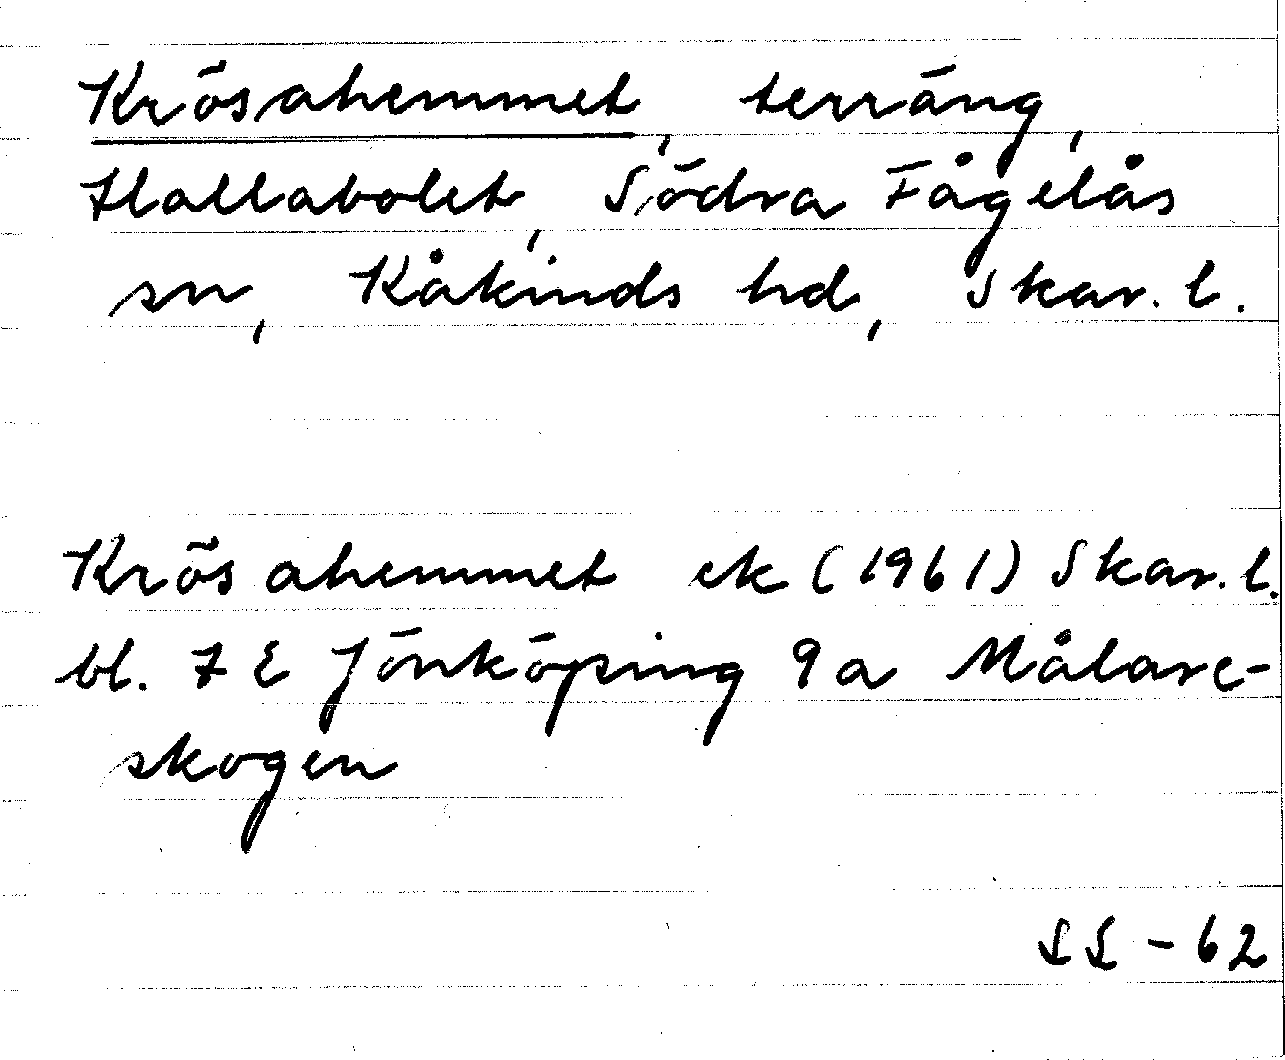 Krösahemmet, terräng,
Hallabolet, Södra Fågelås
sn, Kåkinds hd, Skar. l.
Krösahemmet ek (1961) Skar. l.
bl. 7 E Jönköping 9a Målare-
skogen
SS - 62